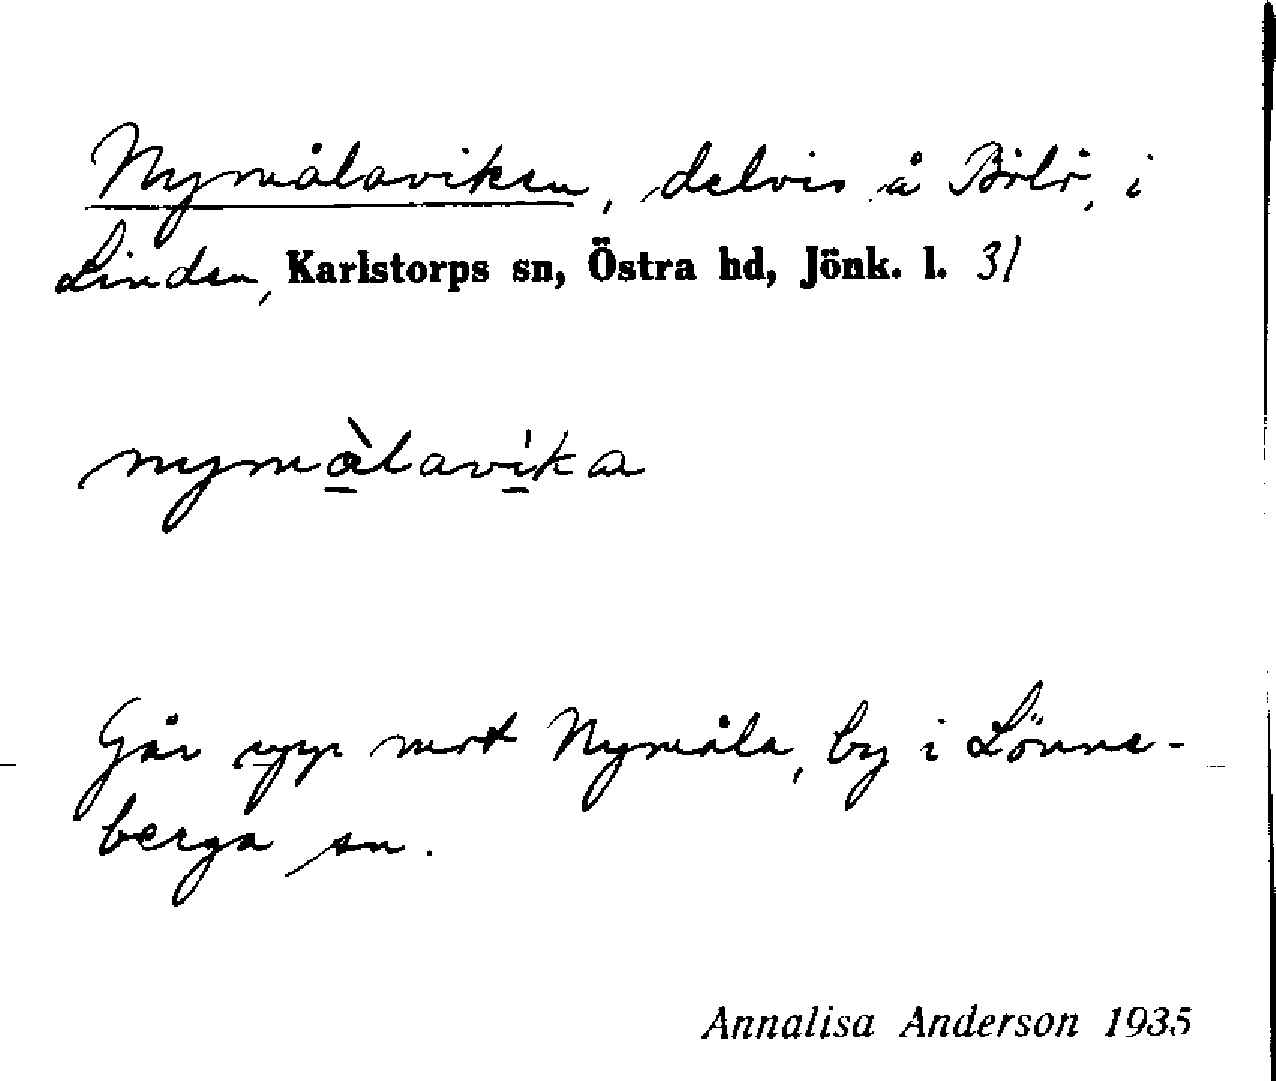 Nymålaviken, delvis å Bölö, i
Linden, Karlstorps sn, Östra hd, Jönk. l. 31
nymàlavíka
Går upp mot Nymåla, by i Lönne-
berga sn.
Annalisa Anderson 1935